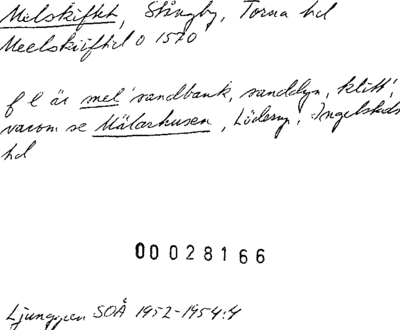 Melskiftet, Stångby, Torna hd
Meelskiifthl o 1570
f l är mel 'sandbank, sanddyn, klitt',
varom se Mälarhusen, Löderup, Ingelstads
hd
00028166
Ljunggren SOÅ 1952-1954:4